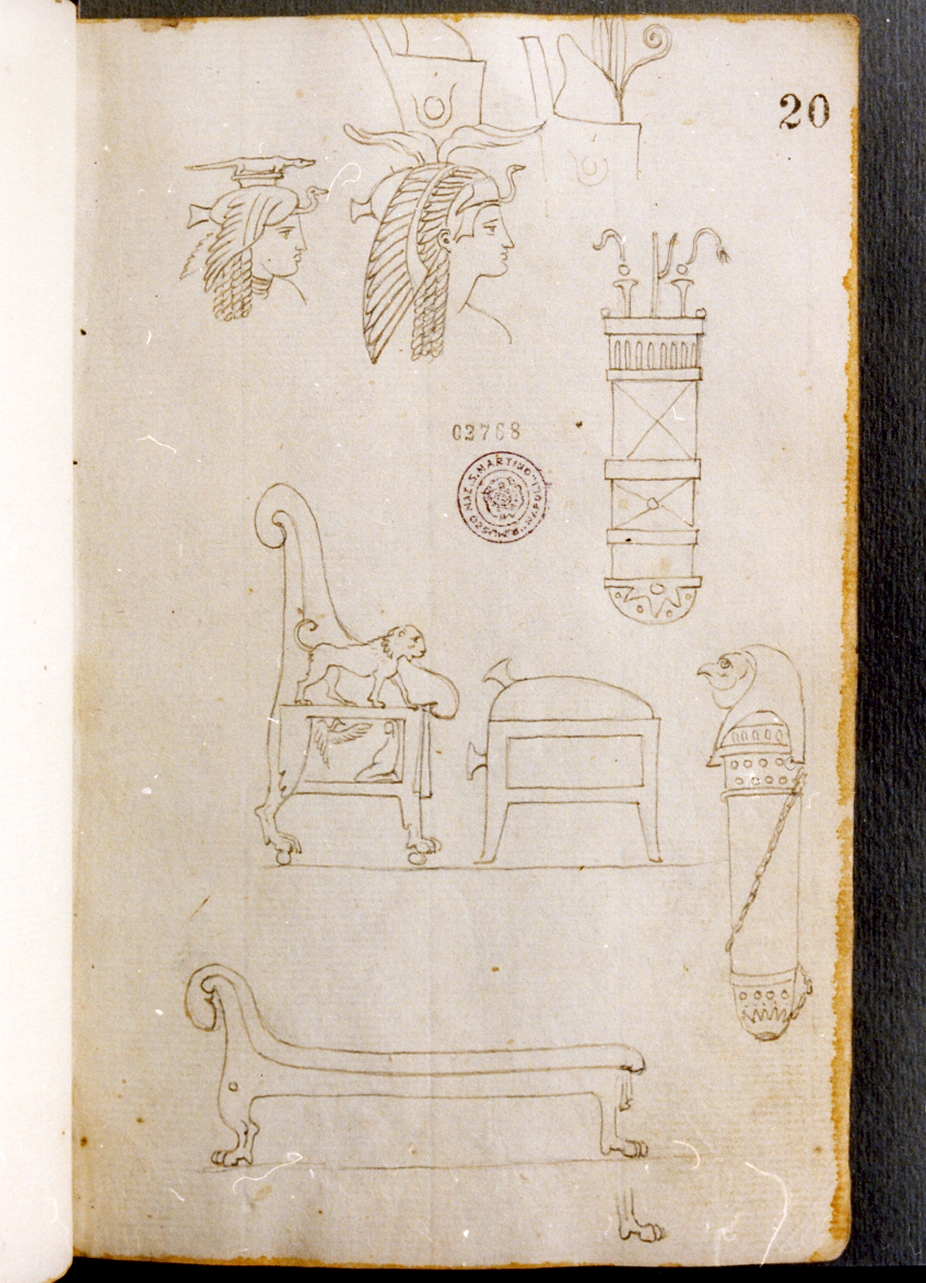 20
02768
R. MUSEO NAZ. S. MARTINO "NAPOLI"